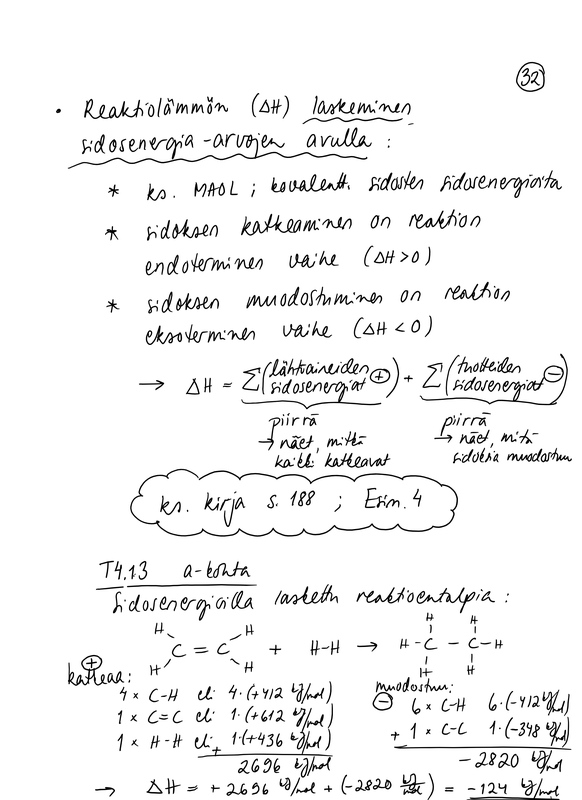 32
• Reaktiolämmön (ΔH) laskeminen
sidosenergia-arvojen avulla :
* ks. MAOL ; kovalentt. sidosten sidosenergioita
* sidoksen katkeaminen on reaktion
endoterminen vaihe (ΔH > 0)
* sidoksen muodostuminen on reaktion
eksoterminen vaihe (ΔH < 0)
→ ΔH = Σ(lähtöaineiden sidosenergiat ⊕) + Σ(tuotteiden sidosenergiat ⊖)
piirrä
→ näet, mitkä
kaikki katkeavat
piirrä
→ näet, mitä
sidoksia muodostuu
ks. kirja s. 188 ; Esim. 4
T4.13 a-kohta
Sidosenergioilla laskettu reaktioentalpia :
H H H H
C = C + H-H → H-C - C-H
H H H H
⊕
katkeaa:
4 × C-H eli 4·(+412 kJ/mol)
1 × C=C eli 1·(+612 kJ/mol)
1 × H-H eli + 1·(+436 kJ/mol)
2696 kJ/mol
muodostuu:
⊖ 6 × C-H 6·(-412 kJ/mol)
+ 1 × C-C 1·(-348 kJ/mol)
-2820 kJ/mol
→ ΔH = +2696 kJ/mol + (-2820 kJ/mol) = -124 kJ/mol